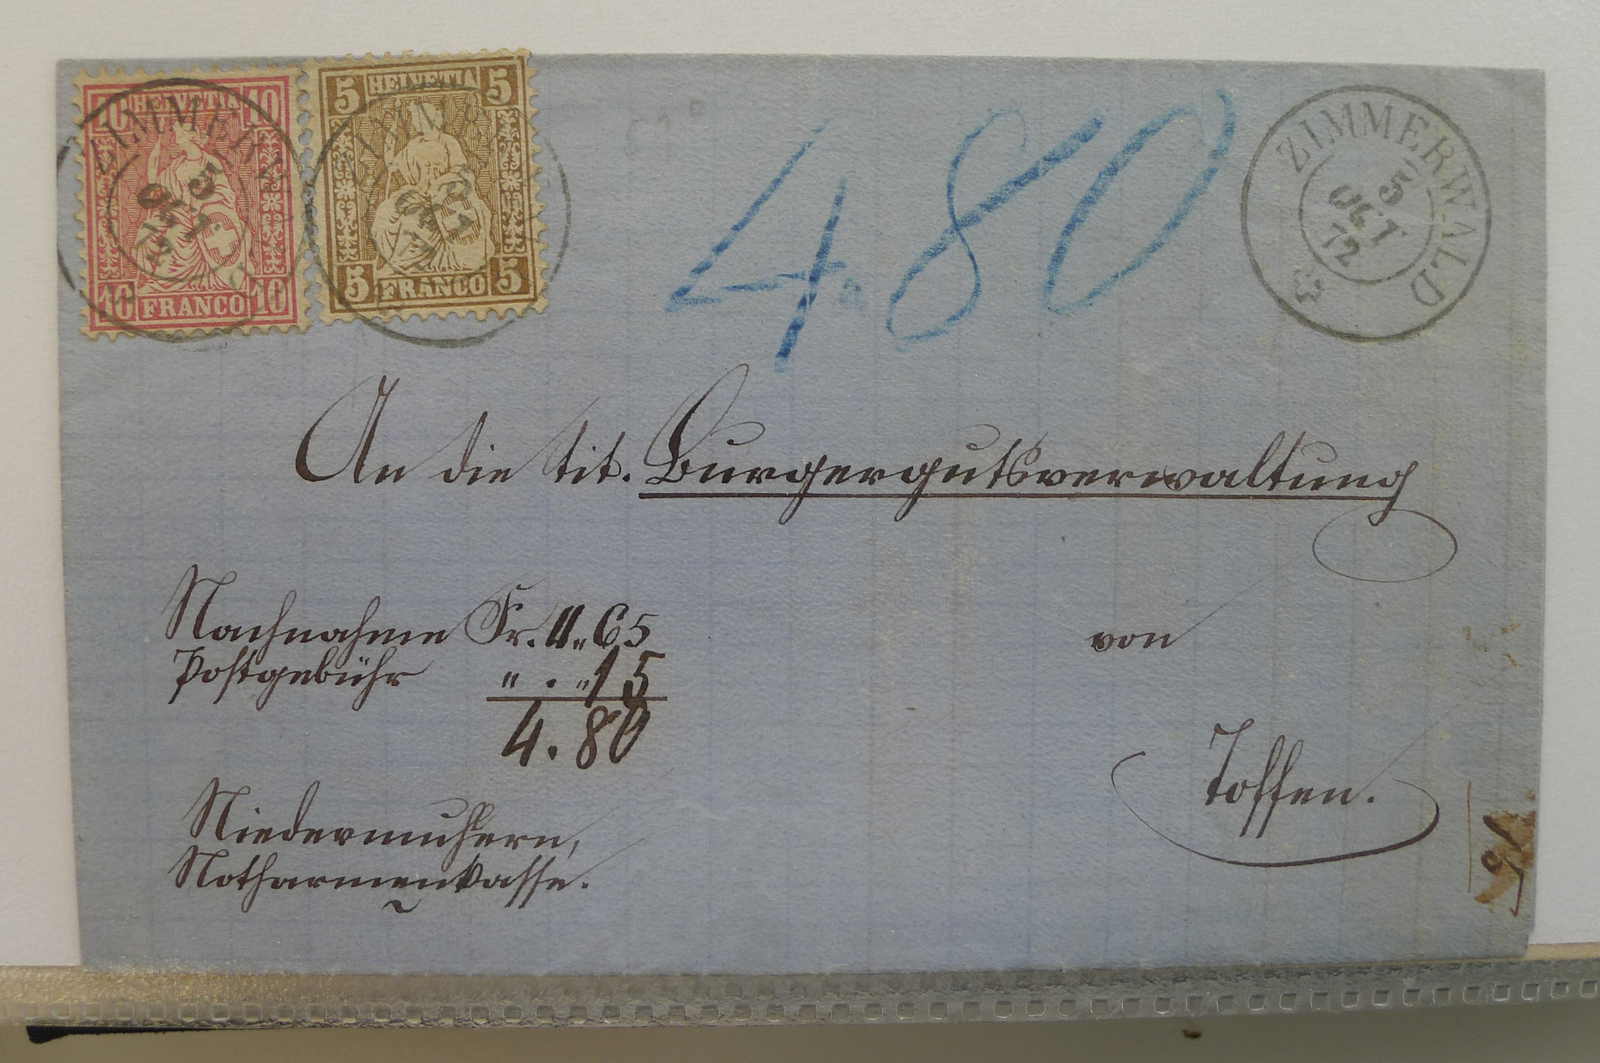 10 HELVETIA 10
10 FRANCO 10
5 HELVETIA 5
5 FRANCO 5
ZIMMERWALD
5
OCT
72
4.80
An die tit. Burgergutsverwaltung
Nachnahme Fr. 4 „ 65
Postgebühr „ . „ 15
4.80
von
Toffen.
Niedermuhlern,
Notharmenkasse.